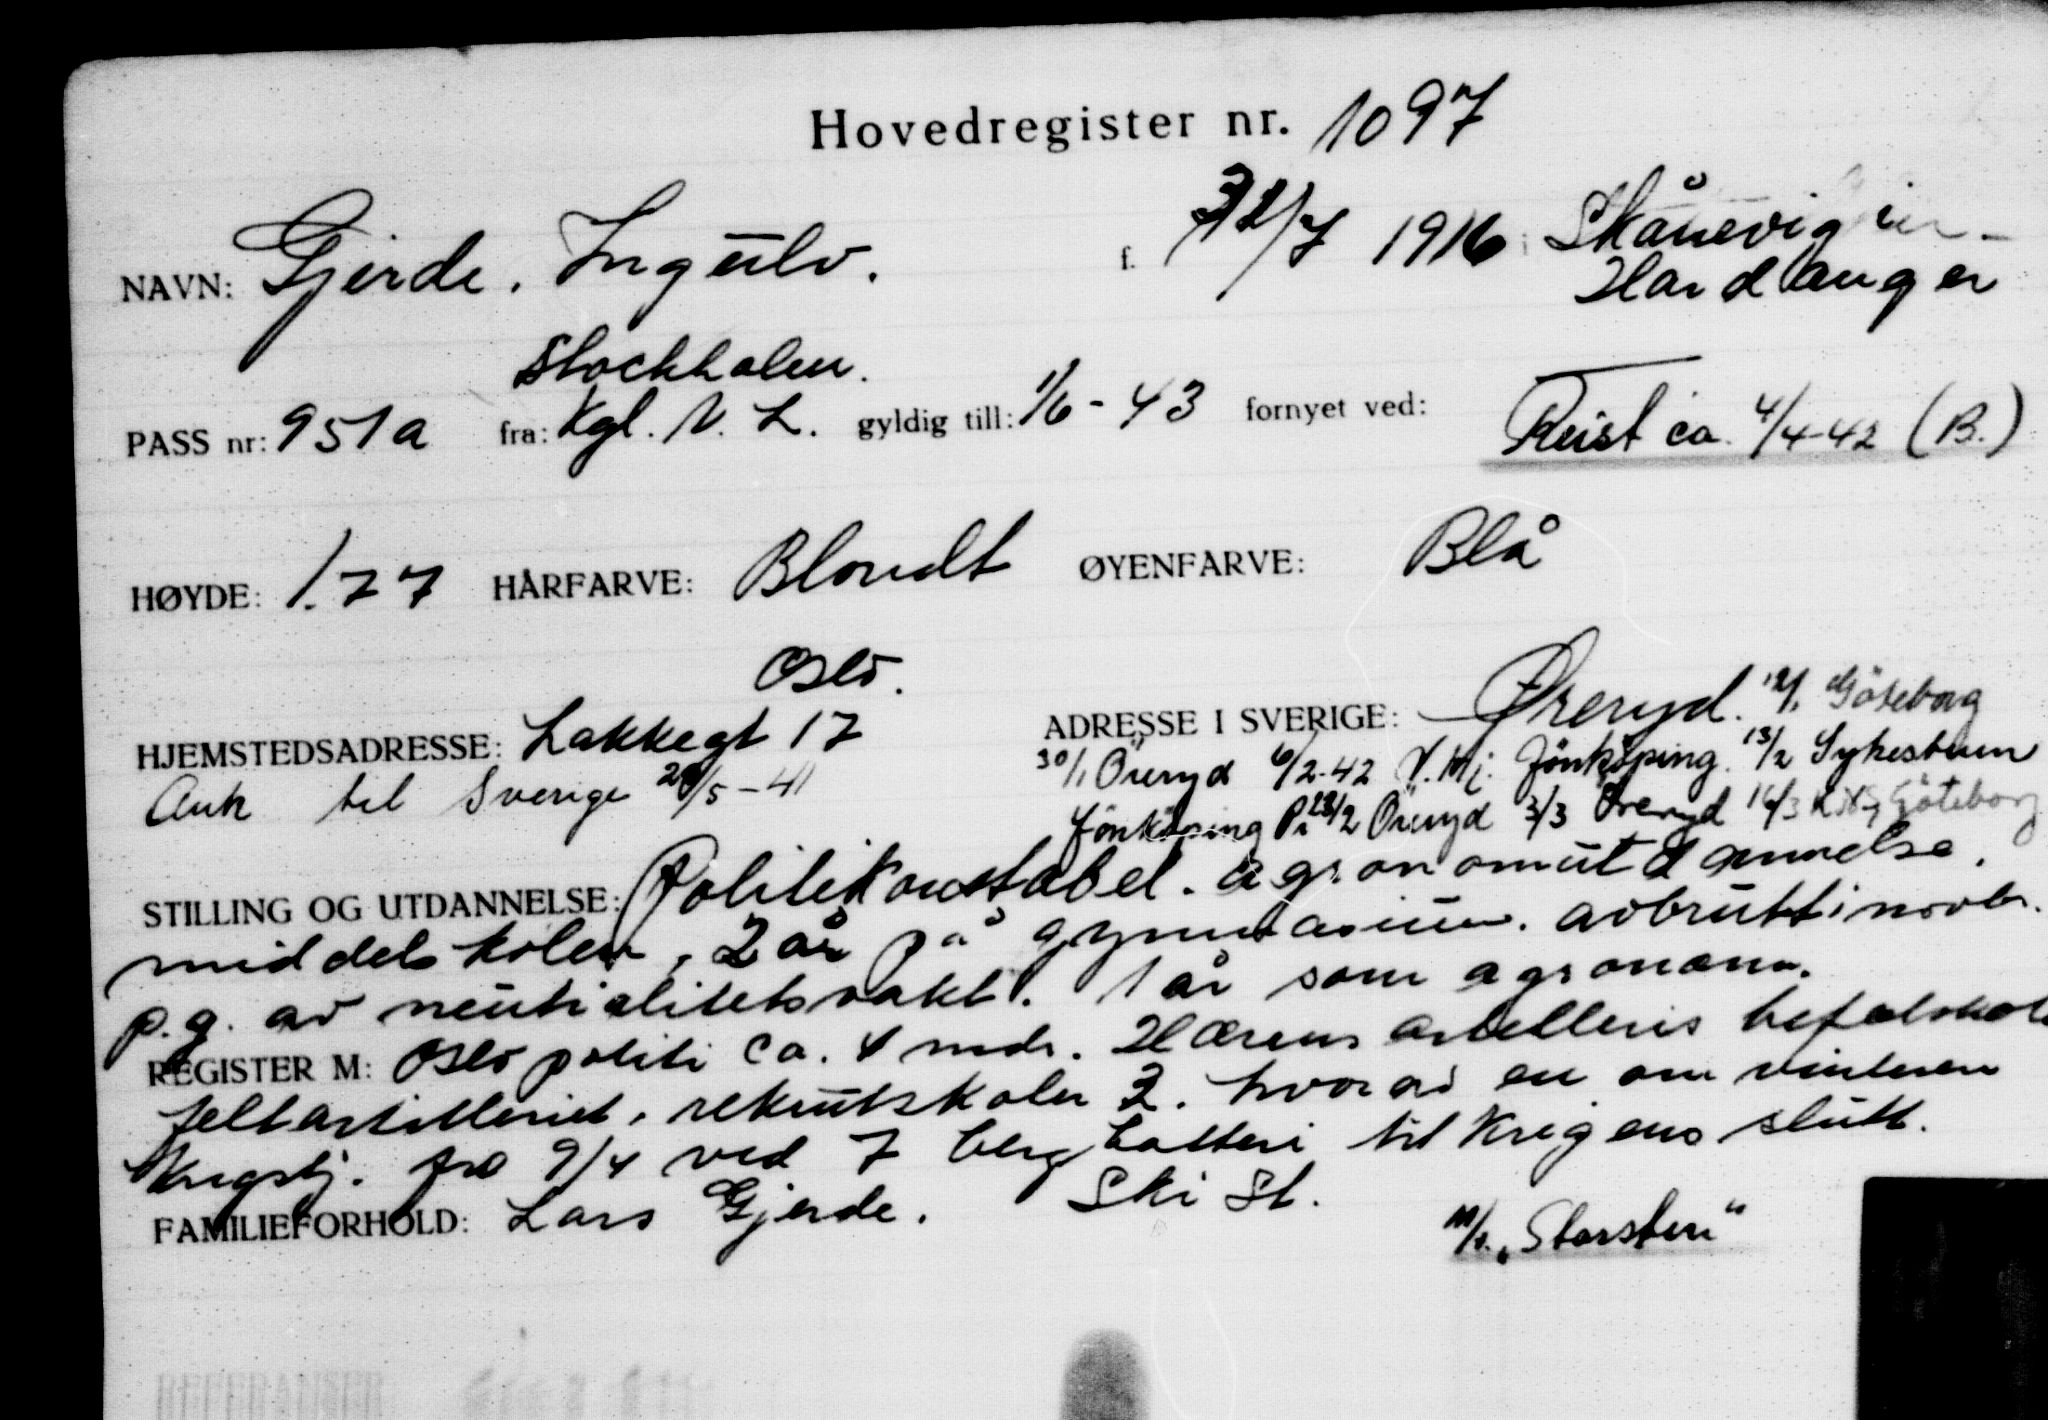 Hovedregister nr. 1097
NAVN: Gjerde, Ingulv. f. /7 1916 Skånevig i
Hardanger
Stockholm.
PASS nr: 951a fra: Kgl. N. L. gyldig till: 1/6 - 43 fornyet ved:
Reist ca. 4/4-42 (B.)
HØYDE: 1.77 HÅRFARVE: Blondt ØYENFARVE: Blå
Oslo.
HJEMSTEDSADRESSE: Lakkegt 17 ADRESSE I SVERIGE: Øreryd. 12/1 Göteborg
Ank til Sverige /5-41 30/1 Öreryd 6/2-42 Jönköping. 13/2 Sykestuen
Jönköping 23/2 Öreryd 3/3 Öreryd 16/3 Göteborg
STILLING OG UTDANNELSE: Politikonstabel. agronomutdannelse,
middelskolen, 2 år på gymnasium. avbrutt i novbr.
p.g. av neutralitetsvakt. 1 år som agronom.
REGISTER M: Oslo politi ca. 4 mdr. Hærens artilleris befalskole
feltartilleriet, rekrutskoler 2. hvorav en om vinteren
Krigstj. fra 9/4 ved 7 berg batteri til Krigens slutt.
FAMILIEFORHOLD: Lars Gjerde. Ski St.
"Storsten"